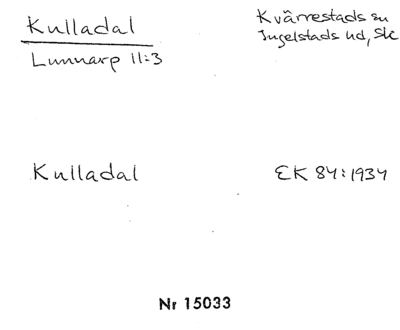 Kulladal
Kvärrestads sn
Ingelstads hd, Sk
Lunnarp 11:3
Kulladal
EK 84:1934
Nr 15033